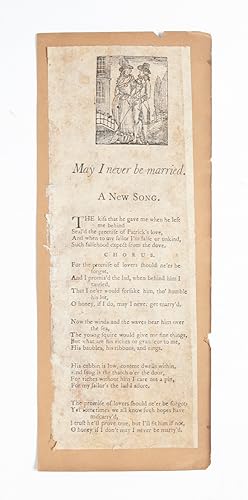 May I never be married.
A NEW SONG.
THE kiss that he gave me when he left
me behind
Seal'd the promise of Patrick's love,
And when to my sailor I'm false or unkind,
Such falsehood expect from the dove.
CHORUS.
For the promise of lovers should ne'er be
forgot,
And I promis'd the lad, when behind him I
tarried,
That I ne'er would forsake him, tho' humble
his lot,
O honey, if I do, may I never get marry'd.
Now the winds and the waves bear him over
the sea,
The young squire would give me fine things,
But what are his riches or grandeur to me,
His baubles, his ribbons, and rings.
His cabbin is low, content dwells within,
And snug is the thatch o'er the door,
For riches without him I care not a pin,
For my sailor's the lad I adore.
The promise of lovers should ne'er be forgot,
Yet sometimes we all know such hopes have
miscarry'd,
I trust he'll prove one, but I'll fix it not
O honey if I don't may I never be marry'd.